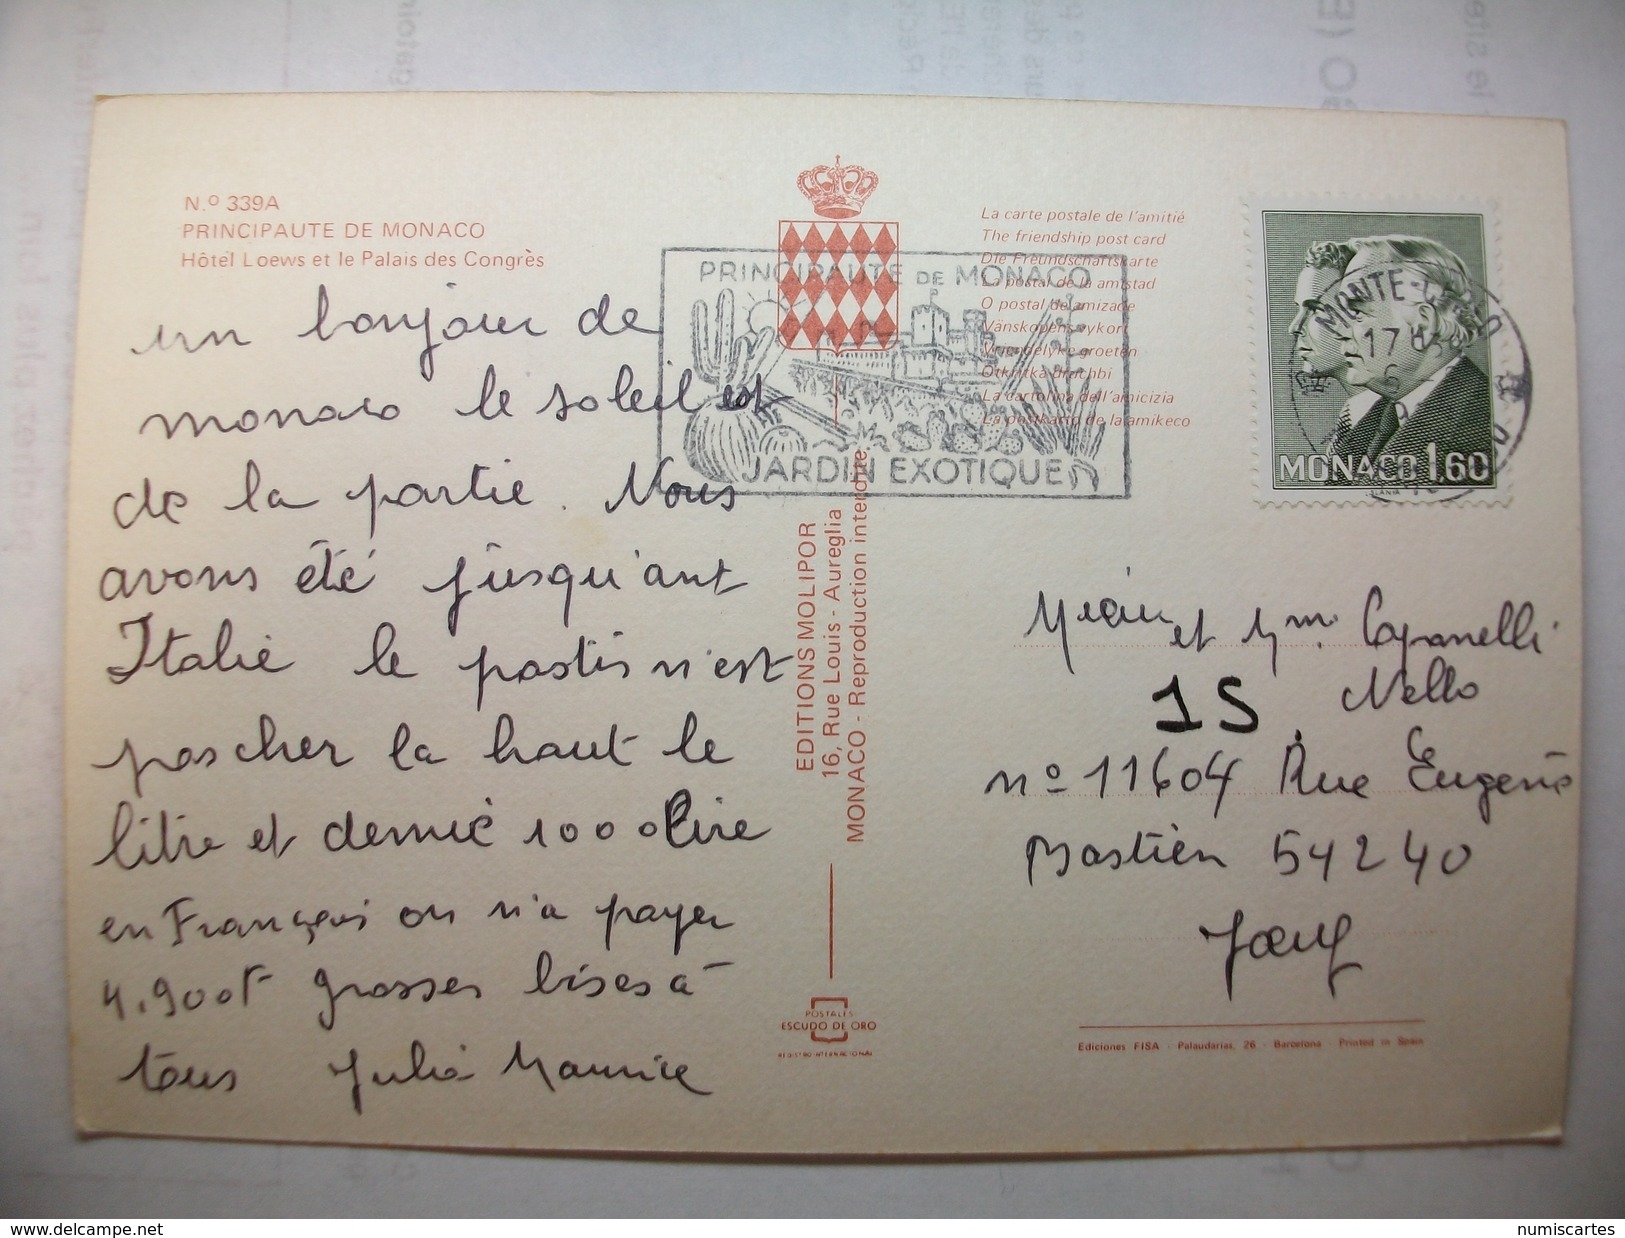 N.º 339A
PRINCIPAUTE DE MONACO
Hôtel Loews et le Palais des Congrès
un bonjour de
monaco le soleil est
de la partie. Nous
avons été jusqu'ant
Italie le pastis n'est
pas cher la haut le
litre et demie 10000 lire
en Français on n'a payer
4.900F grosses bises à
tous Julie Maurice
PRINCIPAUTE DE MONACO
JARDIN EXOTIQUE
EDITIONS MOLIPOR
16, Rue Louis - Aureglia
MONACO - Reproduction interdite
POSTALES
ESCUDO DE ORO
REGISTRO INTERNACIONAL
La carte postale de l'amitié
The friendship post card
Die Freundschaftskarte
La postal de la amistad
O postal de amizade
Vänskapens vykort
Vriendelyke groeten
Otkritka druchbi
La cartolina dell'amicizia
La postkarto de la amikeco
MONTE-CARLO
17 H
MONACO 1.60
et Mme Capanelli
Nello
1S
nº 11604 Rue Eugene
Bastien 54240
Joeuf
Ediciones FISA - Palaudarias, 26 - Barcelona - Printed in Spain
delcampe.net
numiscartes